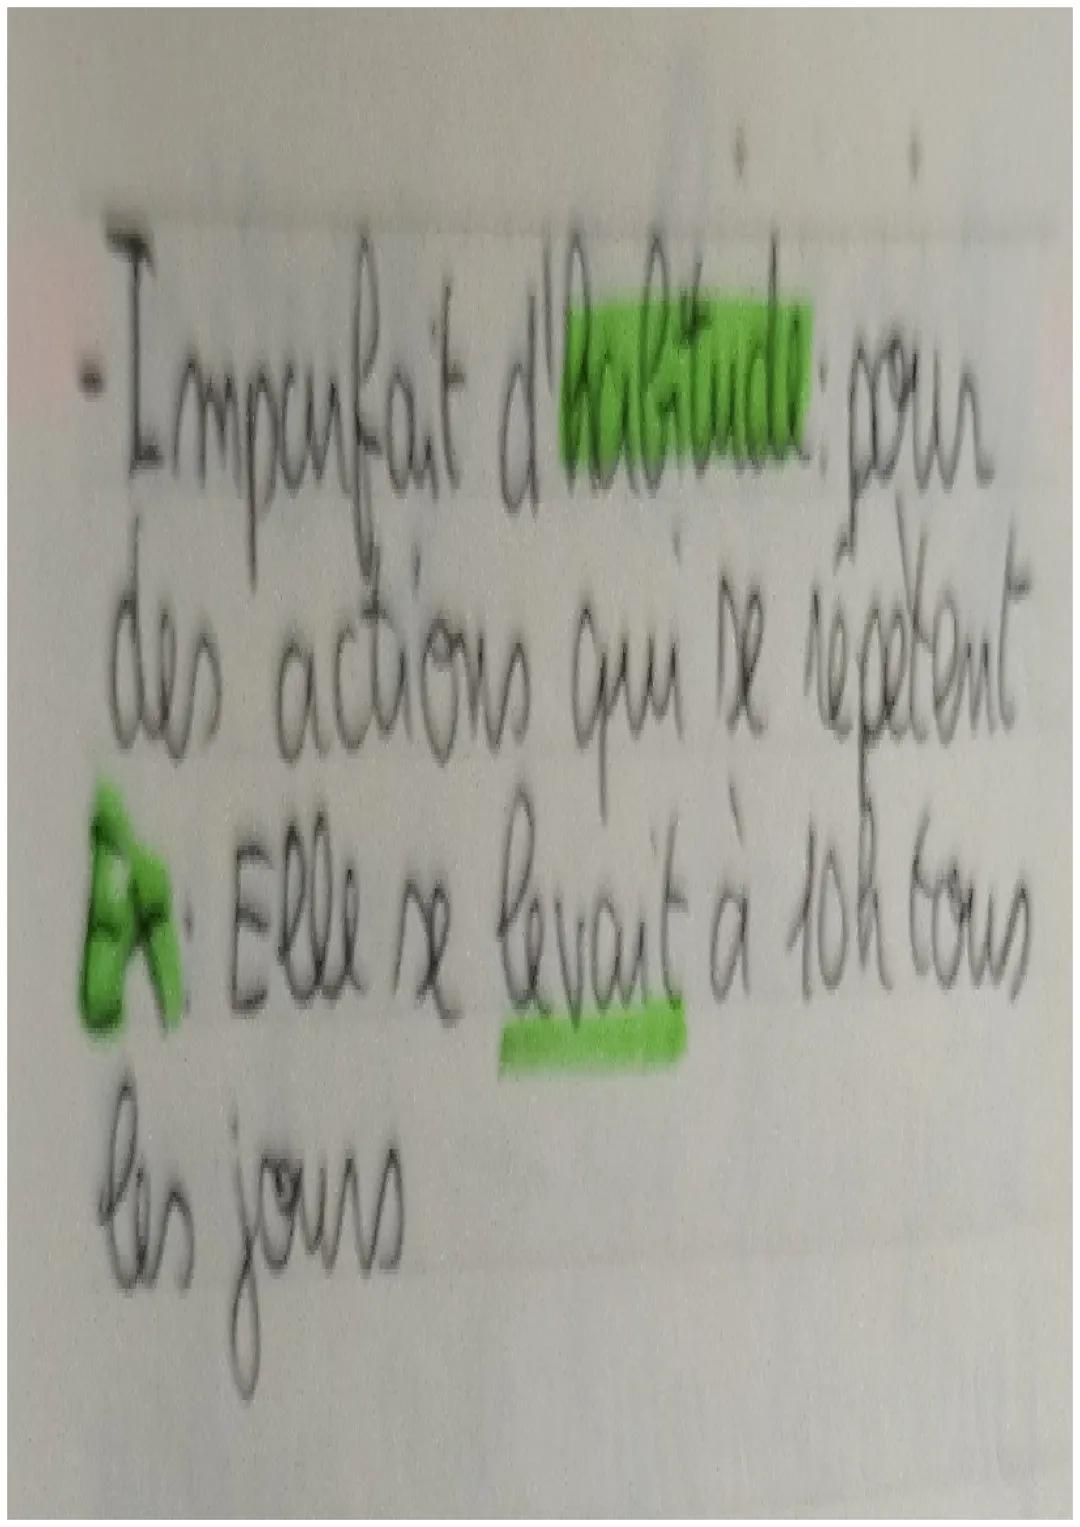 • Imparfait d'habitude : pour
des actions qui se répètent
Ex : Elle se levait à 10h tous
les jours